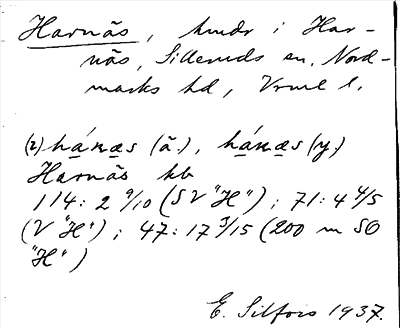 Harnäs, hmdr i Har-
näs, Silleruds sn, Nord-
marks hd, Vrml l.
(2) hánæs (ä.), hánæs (y.)
Harnäs hb
114: 2 9/10 (SV "H"); 71: 4 4/5
(V "H"); 47: 17 3/15 (200 m SO
"H")
E. Silfors 1937.